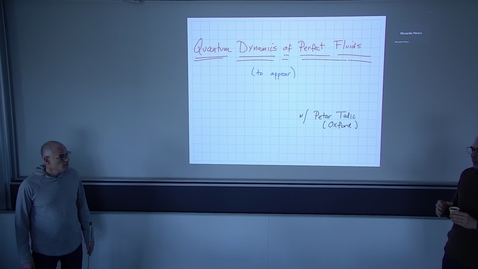 Quantum Dynamics of Perfect Fluids
(to appear)
w/ Petar Tadić
(Oxford)